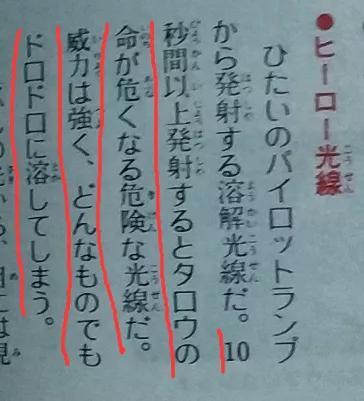 ●ヒーロー光線
ひたいのパイロットランプ
から発射する溶解光線だ。10
秒間以上発射するとタロウの
命が危くなる危険な光線だ。
威力は強く、どんなものでも
ドロドロに溶してしまう。